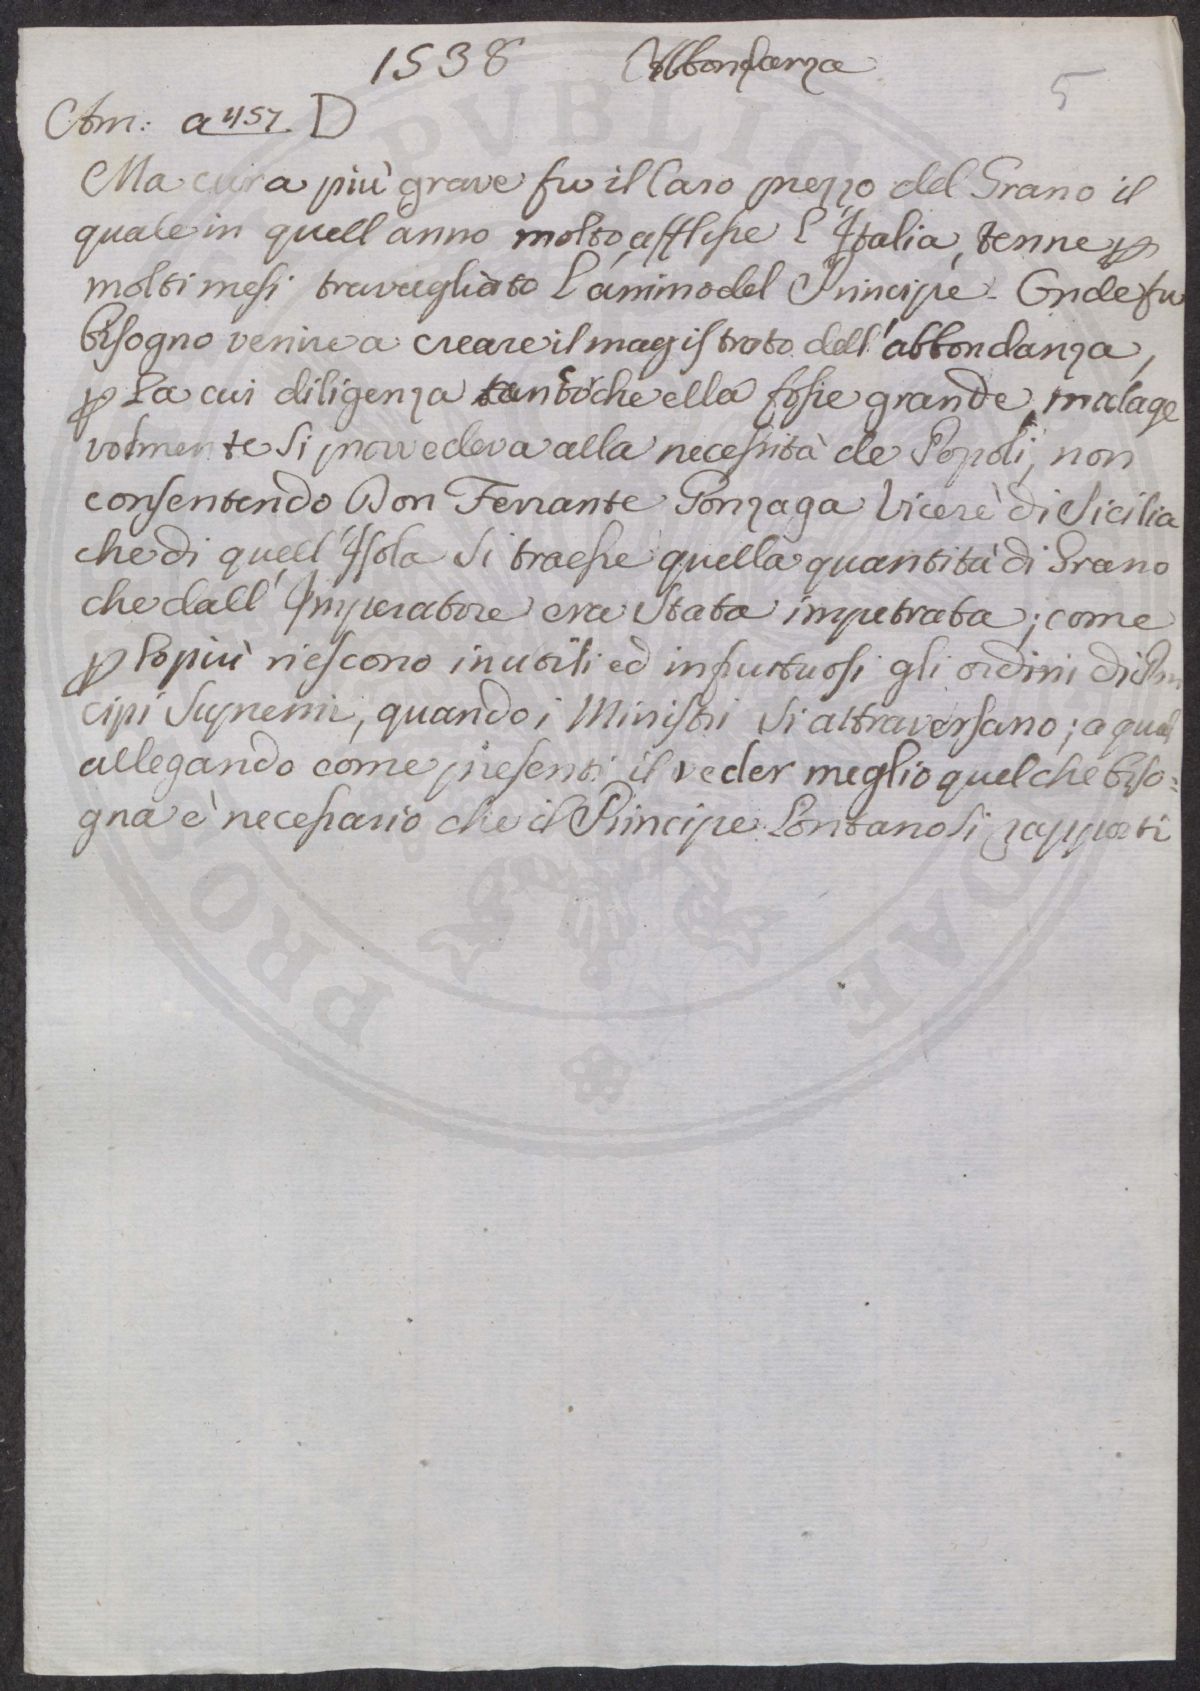 1538 Abbondanza
5
Am: a 457 D
Ma cura più grave fu il Caro prezzo del Grano il
quale in quell'anno molto afflisse l'Italia, tenne p
molti mesi travagliato l'animo del Principe. Onde fu
bisogno venire a creare il magistrato dell'abbondanza,
p la cui diligenza tantoche ella fosse grande, malage
volmente si provvedeva alla necessità de Popoli, non
consentendo Don Ferrante Gonzaga Vicerè di Sicilia
che di quell'Isola si traesse quella quantità di Grano
che dall'Imperatore era stata impetrata; come
p lo più riescono inutili ed infruttuosi gli ordini di Prin
cipi supremi, quando i Ministri si attraversano; a quali
allegando come presenti il veder meglio quel che biso=
gna è necessario che il Principe lontano si rapporti
PRO PVBLICAE